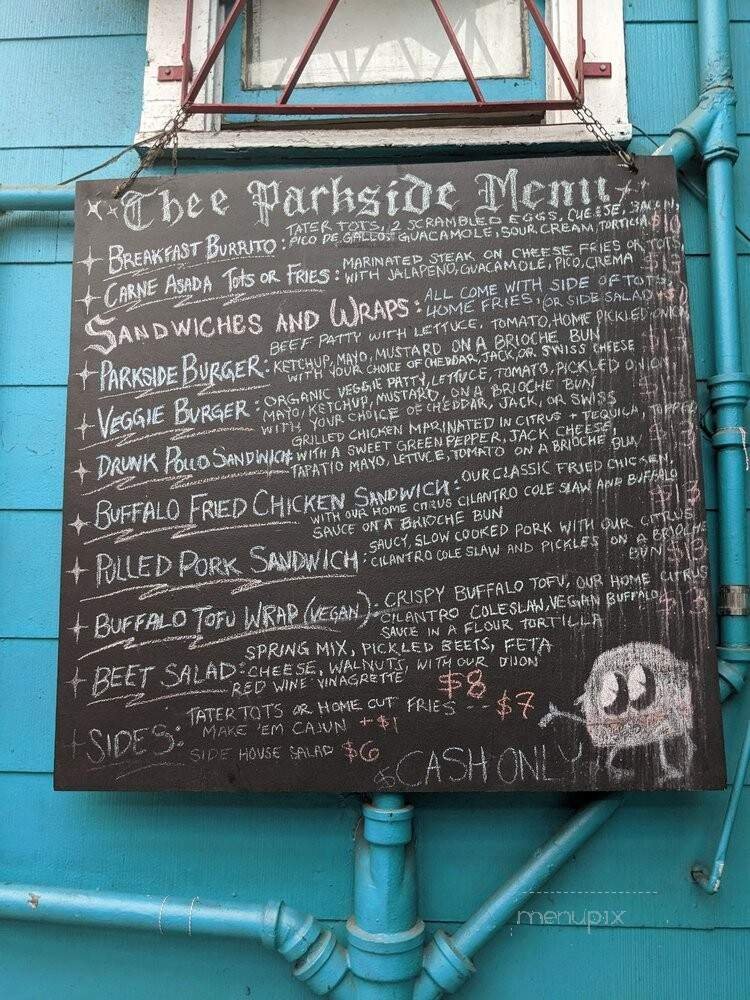 Thee Parkside Menu
TATER TOTS, 2 SCRAMBLED EGGS, CHEESE, BACON,
BREAKFAST BURRITO: PICO DE GALLO, GUACAMOLE, SOUR CREAM, TORTILLA
MARINATED STEAK ON CHEESE FRIES OR TOTS,
CARNE ASADA TOTS OR FRIES: WITH JALAPENO, GUACAMOLE, PICO, CREMA
SANDWICHES AND WRAPS: ALL COME WITH SIDE OF TOTS,
HOME FRIES, OR SIDE SALAD
BEEF PATTY WITH LETTUCE, TOMATO, HOME PICKLED ONION
PARKSIDE BURGER: KETCHUP, MAYO, MUSTARD ON A BRIOCHE BUN
WITH YOUR CHOICE OF CHEDDAR, JACK, OR SWISS CHEESE
ORGANIC VEGGIE PATTY, LETTUCE, TOMATO, PICKLED ONION
VEGGIE BURGER: MAYO, KETCHUP, MUSTARD, ON A BRIOCHE BUN
WITH YOUR CHOICE OF CHEDDAR, JACK, OR SWISS
GRILLED CHICKEN MARINATED IN CITRUS + TEQUILA, TOPPED
DRUNK POLLO SANDWICH: WITH A SWEET GREEN PEPPER, JACK CHEESE,
TAPATIO MAYO, LETTUCE, TOMATO ON A BRIOCHE BUN
BUFFALO FRIED CHICKEN SANDWICH: OUR CLASSIC FRIED CHICKEN,
WITH OUR HOME CITRUS CILANTRO COLE SLAW AND BUFFALO
SAUCE ON A BRIOCHE BUN $13
PULLED PORK SANDWICH: SAUCY, SLOW COOKED PORK WITH OUR CITRUS
CILANTRO COLE SLAW AND PICKLES ON A BRIOCHE
BUN $13
BUFFALO TOFU WRAP (VEGAN): CRISPY BUFFALO TOFU, OUR HOME CITRUS
CILANTRO COLESLAW, VEGAN BUFFALO $13
SAUCE IN A FLOUR TORTILLA
SPRING MIX, PICKLED BEETS, FETA
BEET SALAD: CHEESE, WALNUTS, WITH OUR DIJON
RED WINE VINAGRETTE $8
TATER TOTS OR HOME CUT FRIES -- $7
SIDES: MAKE 'EM CAJUN +$1
SIDE HOUSE SALAD $6
$CASH ONLY
menupix